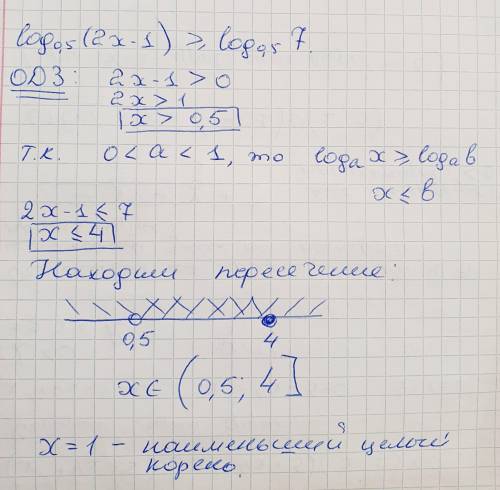 log₀,₅(2x-1) ≥ log₀,₅ 7.
ОДЗ: 2x-1 > 0
2x > 1
x > 0,5
т.к. 0 < a < 1, то logₐ x ≥ logₐ b
x ≤ b
2x-1 ≤ 7
x ≤ 4
Находим пересечение:
0,5 4
x ∈ (0,5; 4]
x = 1 - наименьший целый
корень.